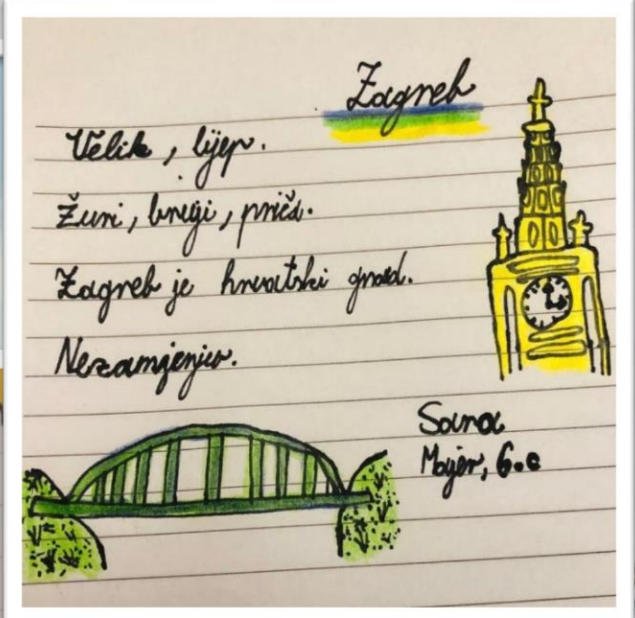 Zagreb
Velik, lijep.
Žuri, bruji, priča.
Zagreb je hrvatski grad.
Nezamjenjiv.
Sara
Majer, 6.c